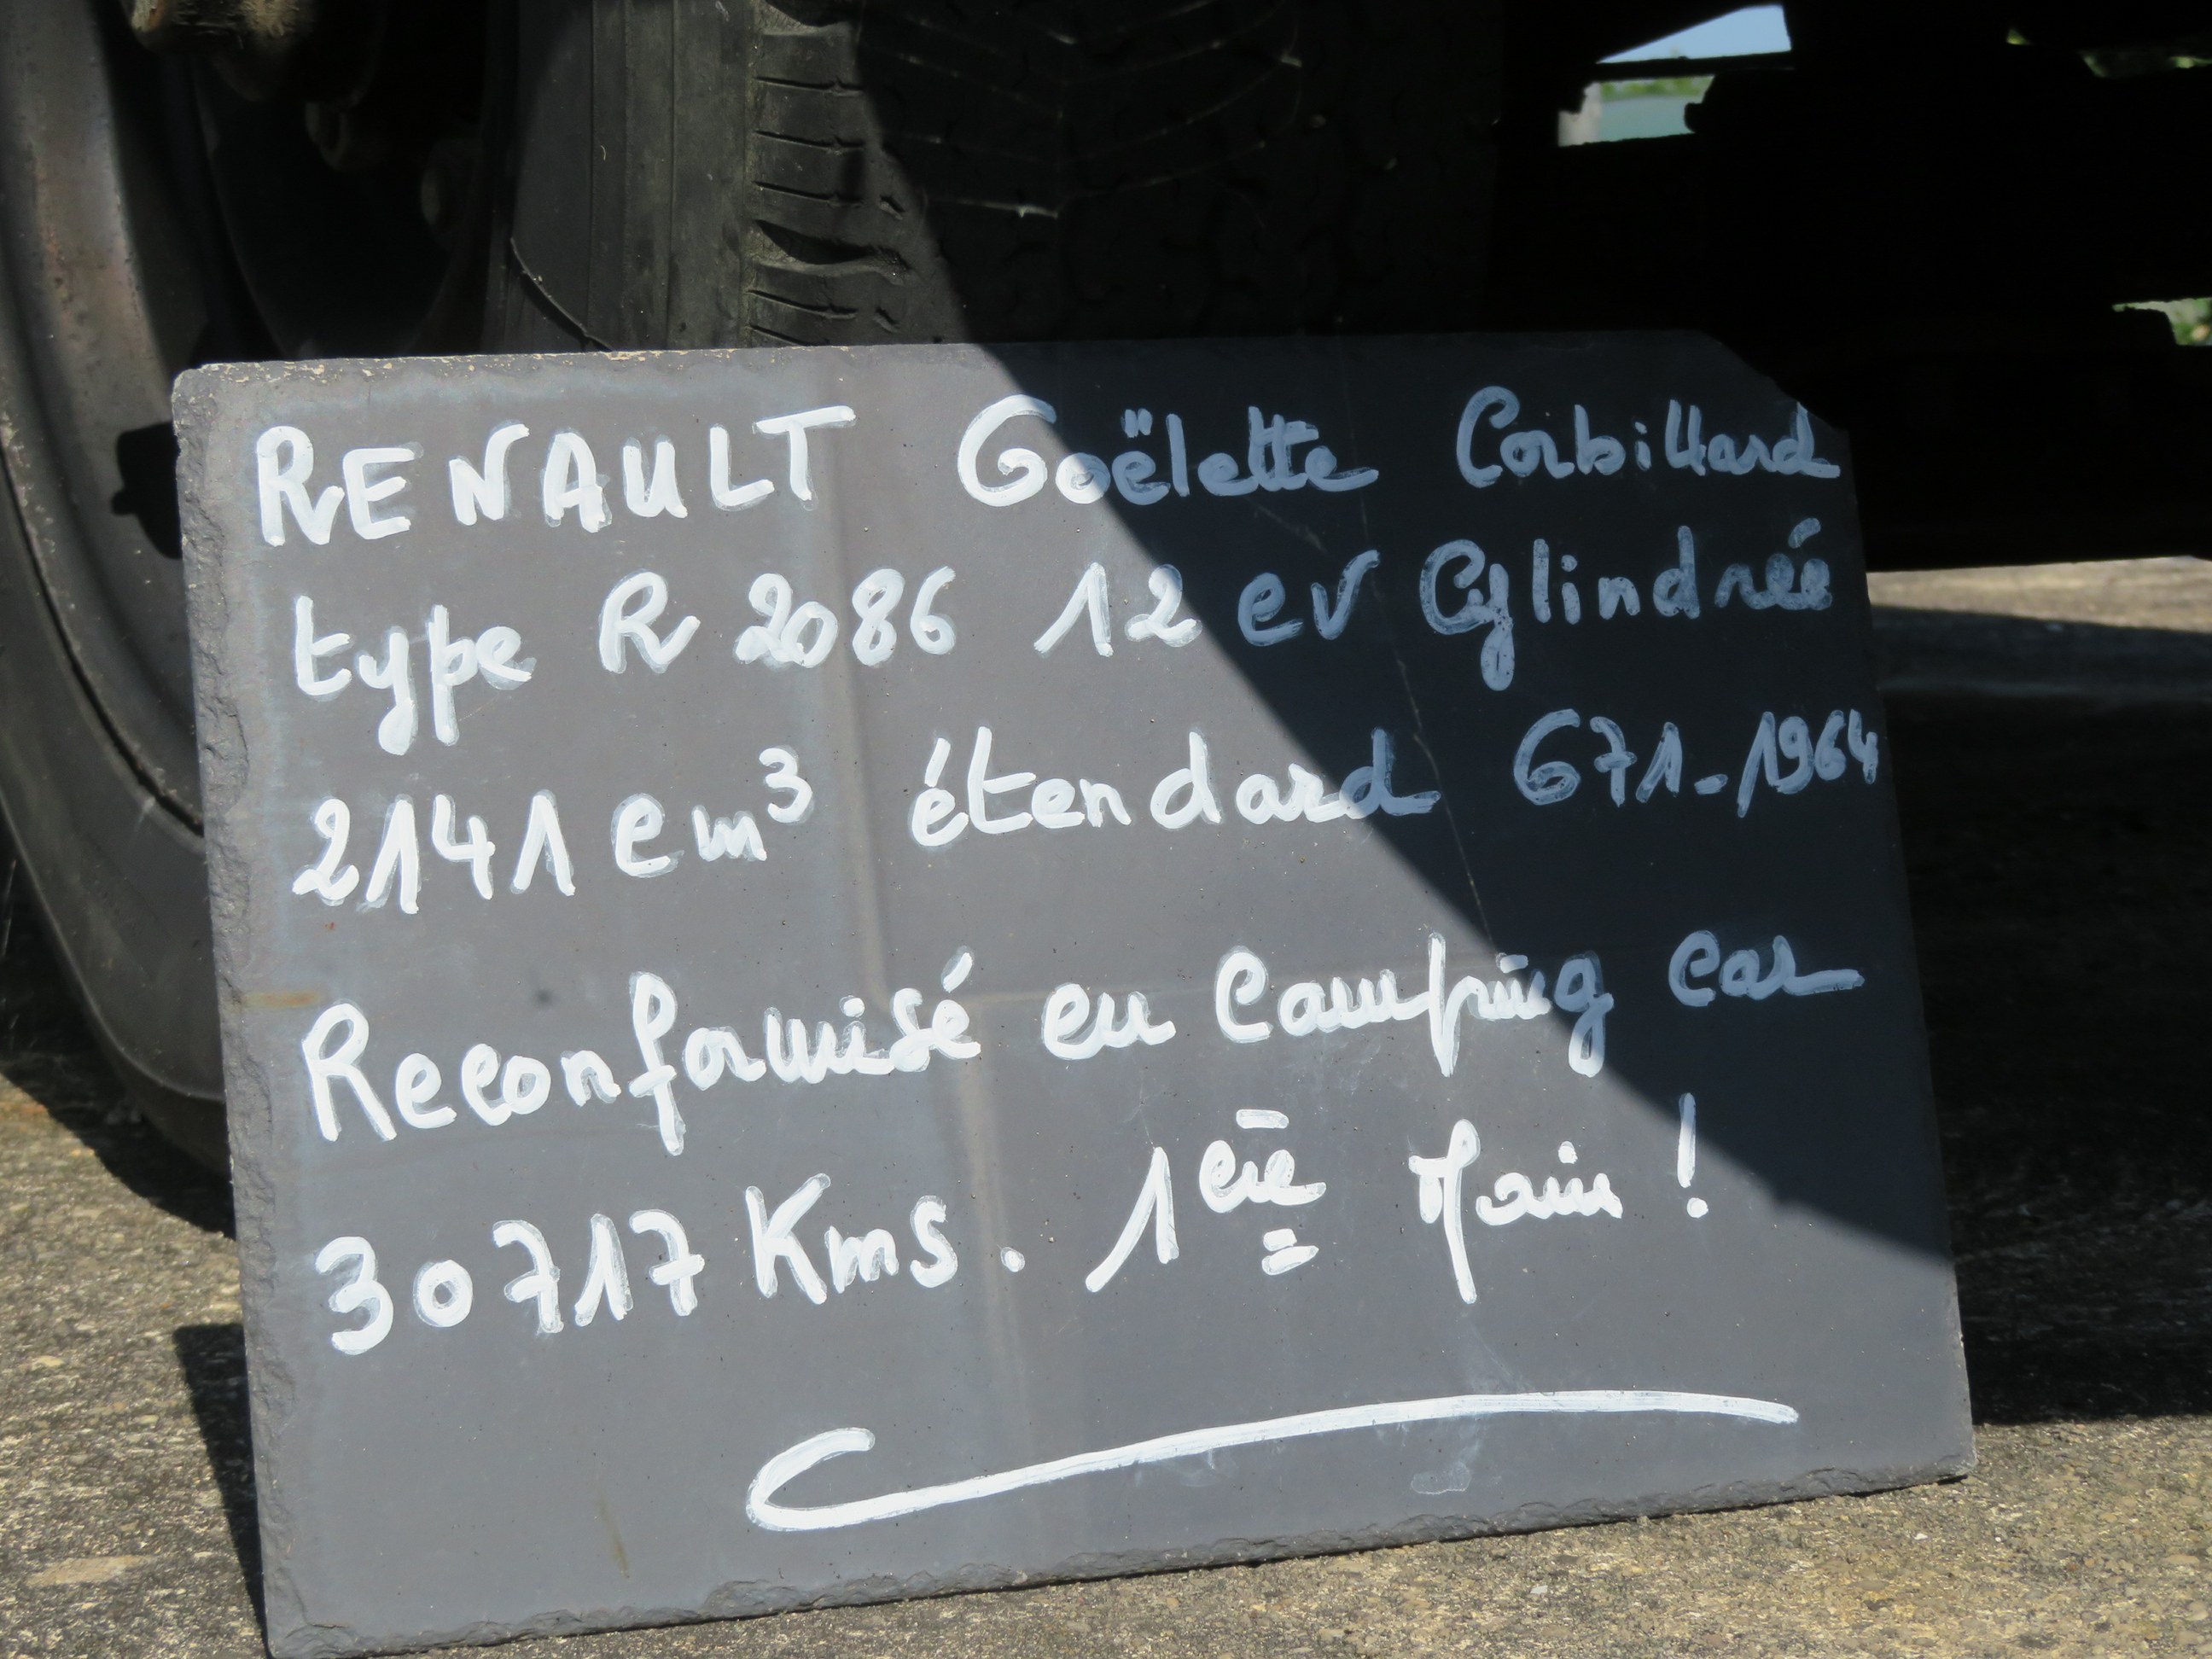 RENAULT Goëlette Corbillard
type R 2086 12 cv Cylindrée
2141 cm³ étendard 671-1964
Reconformisé en Camping Car
30717 Kms. 1ère Main !